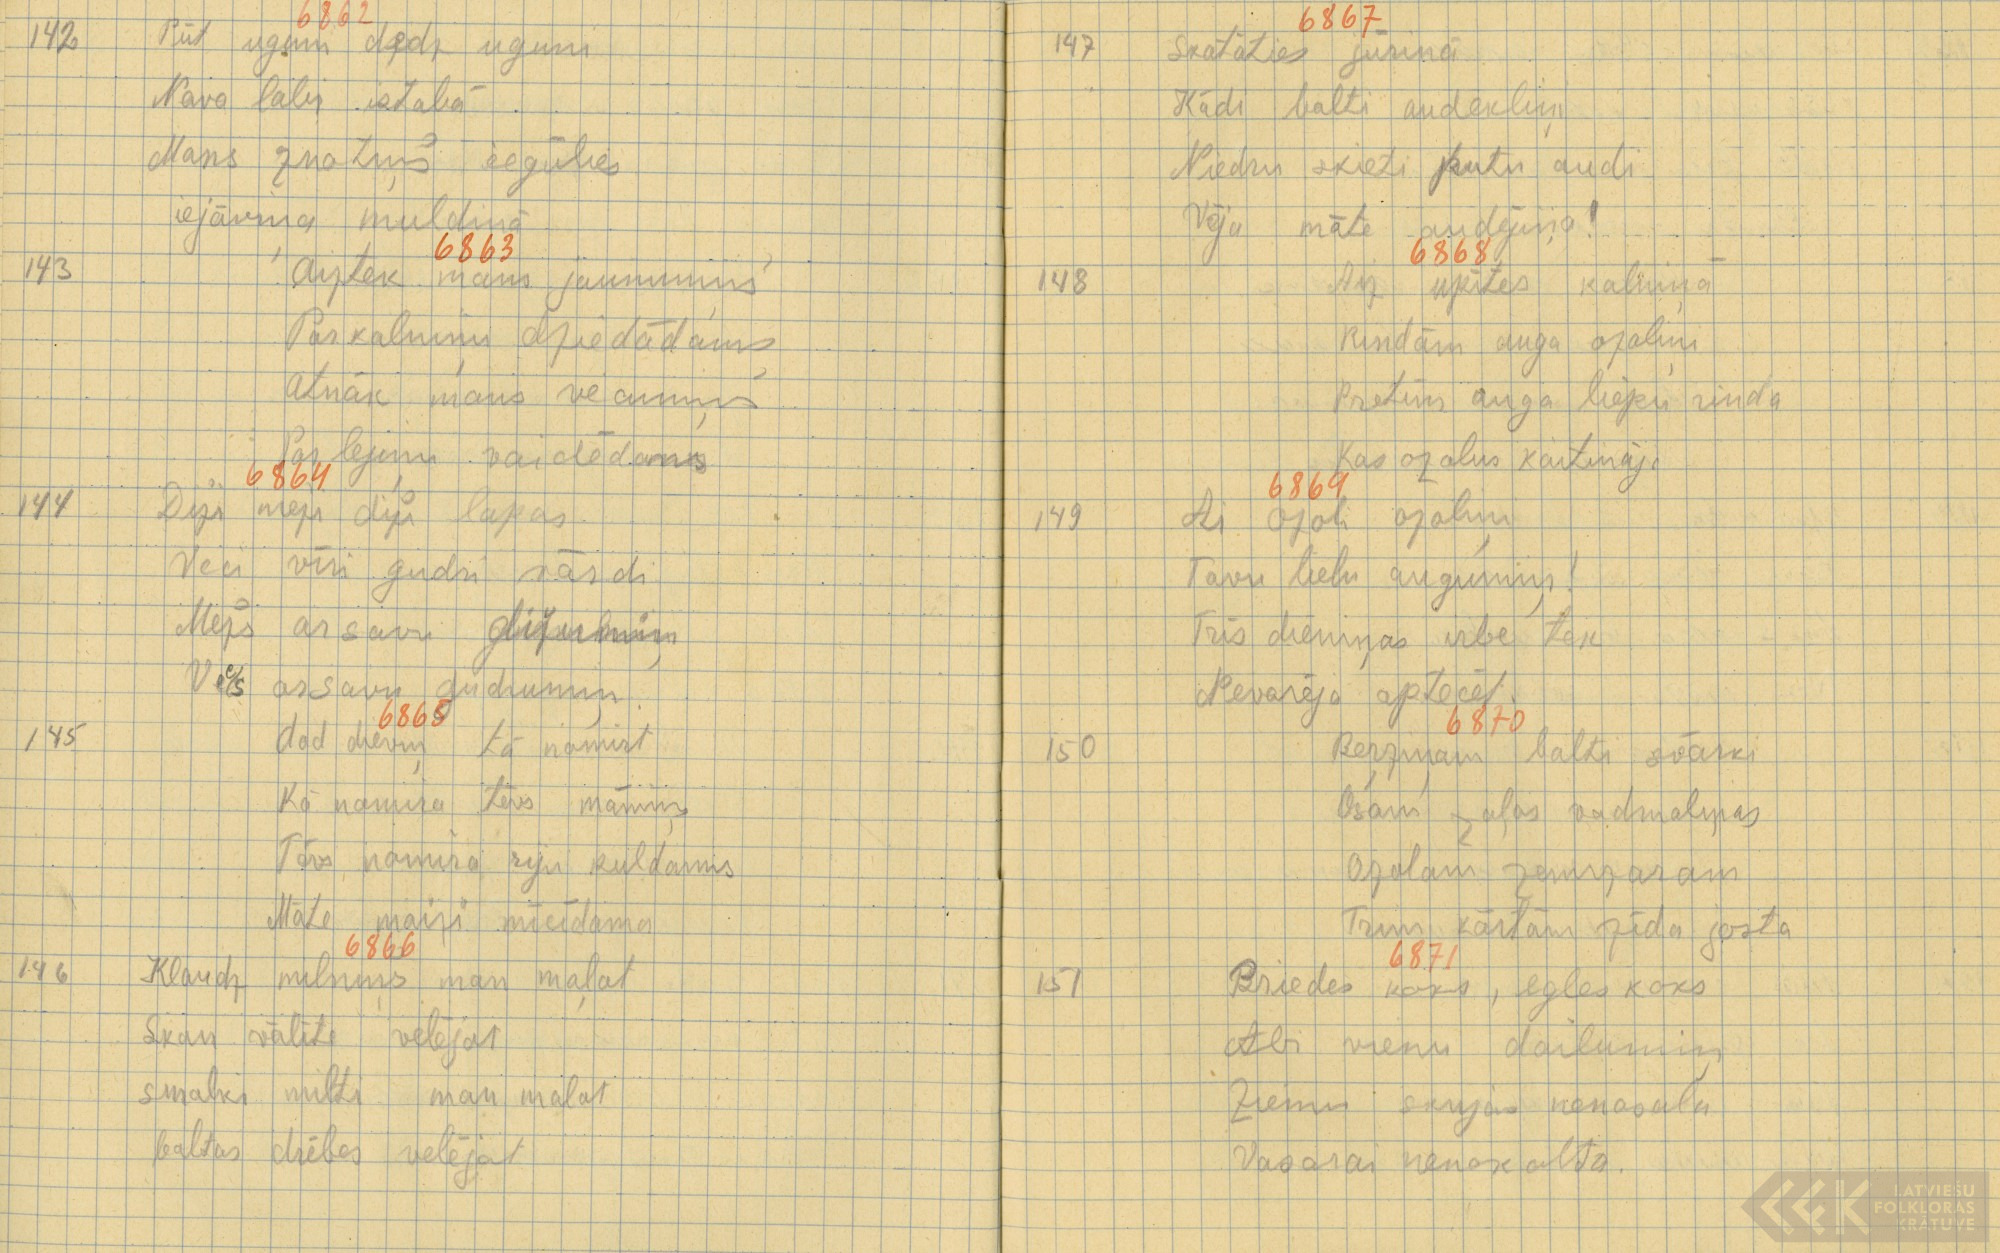 6862
142 Pūt uguni dedz uguni
Nava labi istabā
Mans znotiņš iegūlies
iejāviņa muldiņā
6863
143 Aiztek mans jaunumiņš
Par kalniņu dziedādams
Atnāk mans vecumiņš
Par lejiņu vaidēdams
6864
144 Diži meži diži lapas
Veci vīri gudri vārdi
Mežs ar savu
Vecs arsavu gudrumiņ
6865
145 dod dieviņ tā nomirt
Kā nomira tēvs māmiņ
Tēvs nomira riju kuldams
Māte maizi mīcīdama
6866
146 Klaudz milniņs man maļot
Skan vālīte velējot
smalki milti man malot
baltas drēbes velējot
6867
147 Skatāties jūriņā
Kādi balti audekliņi
Niedru šķieti putu audi
Vēja māte audējiņa!
6868
148 Aiz upītes kalniņā
Rindām auga ozoliņi
Pretim auga liepu rinda
Kas ozolus kaitināja
6869
149 Ai ozoli ozoliņ
Tavu lielu augumiņ!
Trīs dieniņas irbe tek
Nevarēja aptecēt.
6870
150 Berziņam balti svārki
Ošam zaļas vadmaliņas
Ozolam zemzaram
Trim kārtām zīda josta
6871
151 Priedes koks, egles koks
Abi vienu dailumiņ
Ziemu skujas nenosala
Vasarai nenokalta.
LATVIEŠU
FOLKLORAS
KRĀTUVE